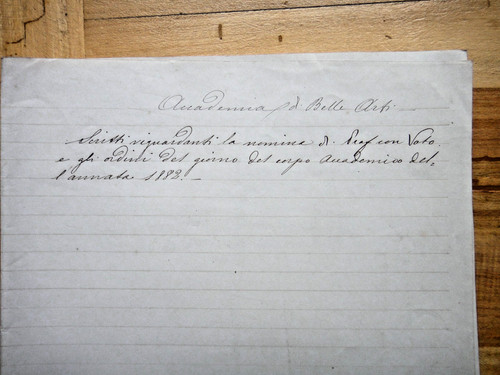 Accademia d Belle Arti
Scritti riguardanti la nomina di Prof con Voto
e gli ordini del giorno del corpo Accademico del-
l'annata 1882.-